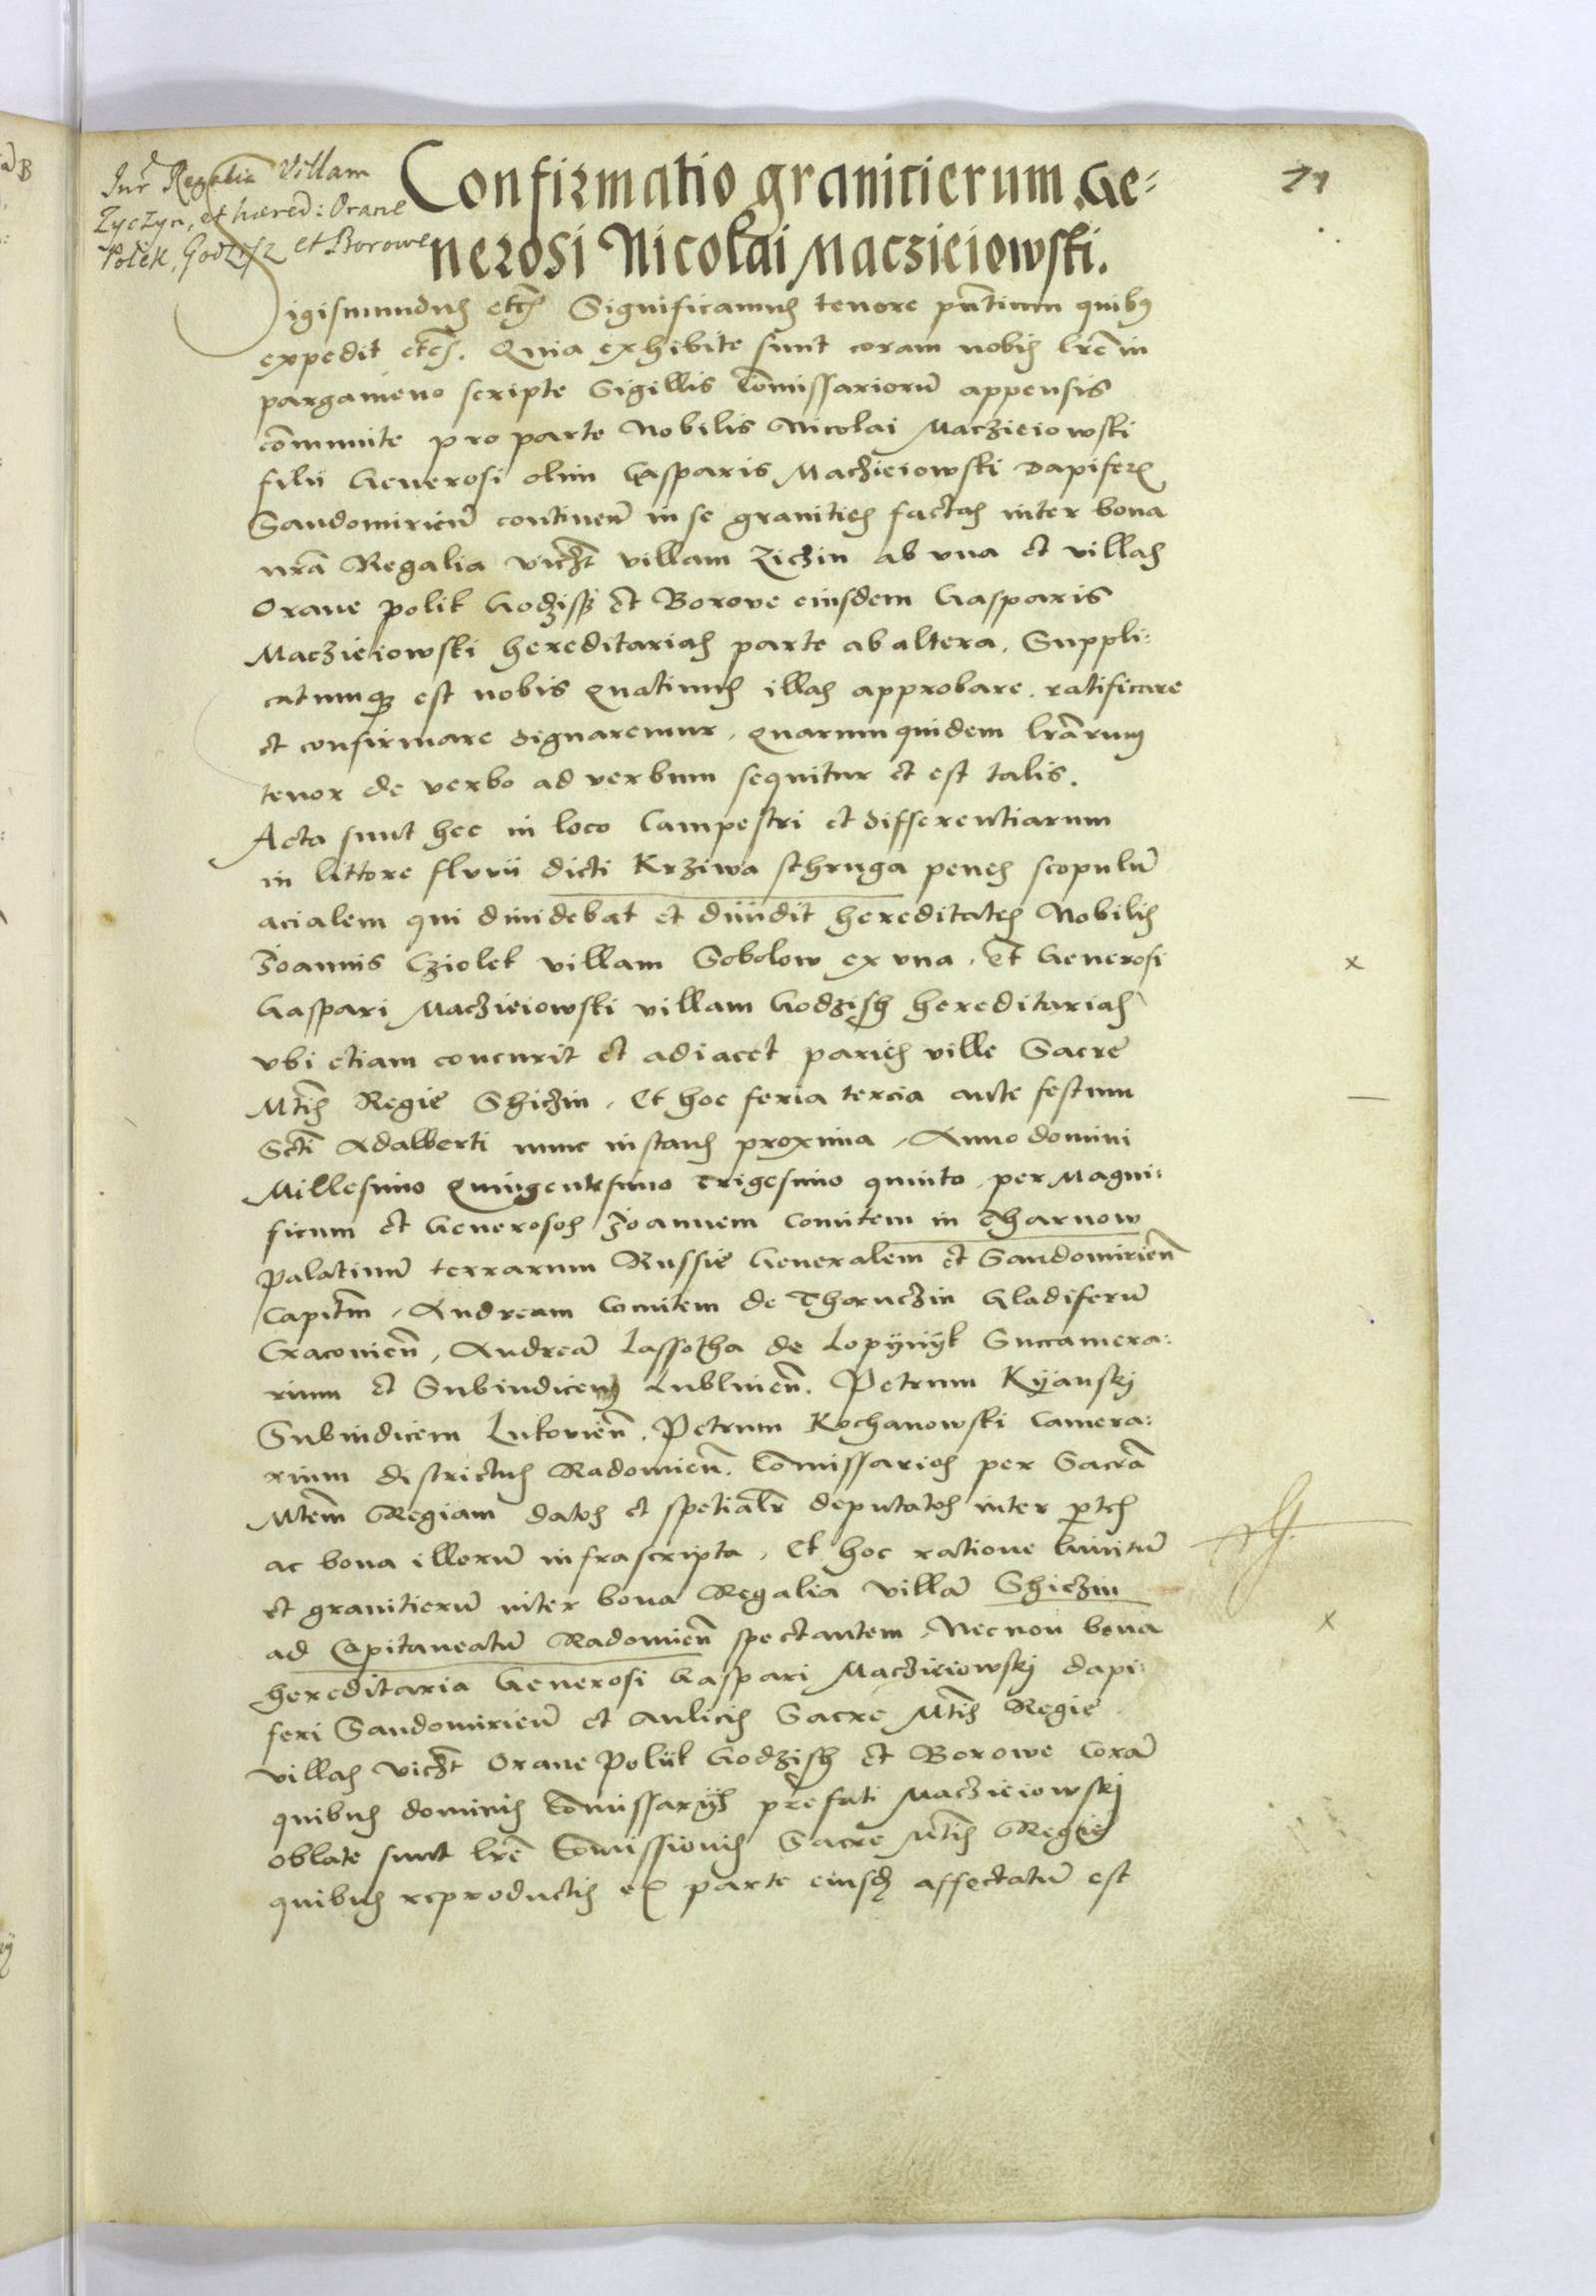 Int̃ Regalia Villam
Zyczyn, et hæred: Orane
Polek, Godzisz et Borowe
71
Confirmatio granicierum Ge-
nerosi Nicolai Maczieiowski.
Sigismundus etc̃ Significamus tenore pñtium quibus
expedit etc̃. Quia exhibite sunt coram nobis lr̃e in
pargameno scripte Sigillis Com̃issariorũ appensis
com̃unite pro parte Nobilis Nicolai Maczieiowski
filii Generosi olim Gasparis Maczieiowski Dapiferi
Sandomirieñ continen̄ in se granities factas inter bona
nr̃a Regalia viczt̃ villam Ziczin ab vna et villas
Orane Polik Godzissz et Borove eiusdem Gasparis
Maczieiowski hereditarias parte ab altera. Suppli:
catumq3 est nobis Quatinus illas approbare ratificare
et confirmare dignaremur, Quarum quidem lr̃arum
tenor de verbo ad verbum sequitur et est talis.
Acta sunt hec in loco Campestri et differentiarum
in littore fluvii dicti Krziwa sthruga penes scopulũ
acialem qui dividebat et dividit hereditates Nobilis
Joannis Cziolek villam Sobolow ex vna, et Generosi
Gaspari Maczieiowski villam Godzisch hereditarias
vbi etiam concurit et adiacet paries ville Sacre
Mt̃is Regie Schiczin, Et hoc feria tercia ante festum
Sct̃i Adalberti nunc instans proxima, Anno domini
Millesimo Quingentesimo Trigesimo quinto, per Magni:
ficum et Generosos Joannem Comitem in Tharnow
Palatinũ terrarum Russie Generalem et Sandomirieñ
Capit̃m, Andream Comitem de Thanczin Gladiferũ
Cracovieñ, Andreã Lassotha de Lopÿnÿk Succamera:
rium et Subiudicem Lublineñ. Petrum Kÿanskj
Subiudicem Lukovieñ. Petrum Kochanowski Camera:
rium districtus Radomieñ. Com̃issarios per Sacrã
Mt̃em Regiam datos et spetialr̃ deputatos inter pr̃tes
ac bona illorũ infrascripta, Et hoc ratione limitũ
et granitierũ inter bona Regalia villã Schiczin
ad Capitaneatũ Radomieñ spectantem, Necnon bona
hereditaria Generosi Gaspari Maczieiowskj dapi:
feri Sandomirieñ et aulicis Sacre Mt̃is Regie
villas viczt̃ Orane Poliik Godzisch et Borowe Corã
quibus dominis Com̃issarÿs prefati Maczieiowskj
oblate sunt lr̃e Com̃issionis Sacre Mt̃is Regie
quibus reproductis ex parte eiusd3 affectatũ est